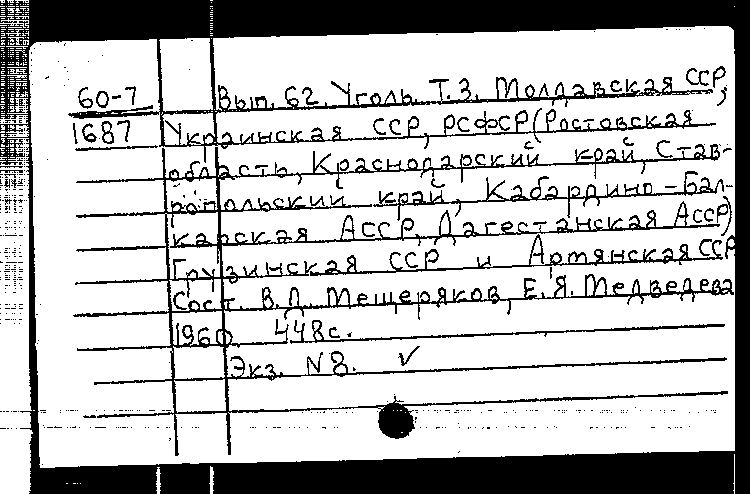 60-7 Вып. 62. Уголь. Т.3. Молдавская ССР,
1687 Украинская ССР, РСФСР (Ростовская
область, Краснодарский край, Став-
ропольский край, Кабардино-Бал-
карская АССР, Дагестанская АССР)
Грузинская ССР и Артянская ССР
Сост. В.Д. Мещеряков, Е.Я. Медведева
1960. 448с.
Экз. N8. ✓